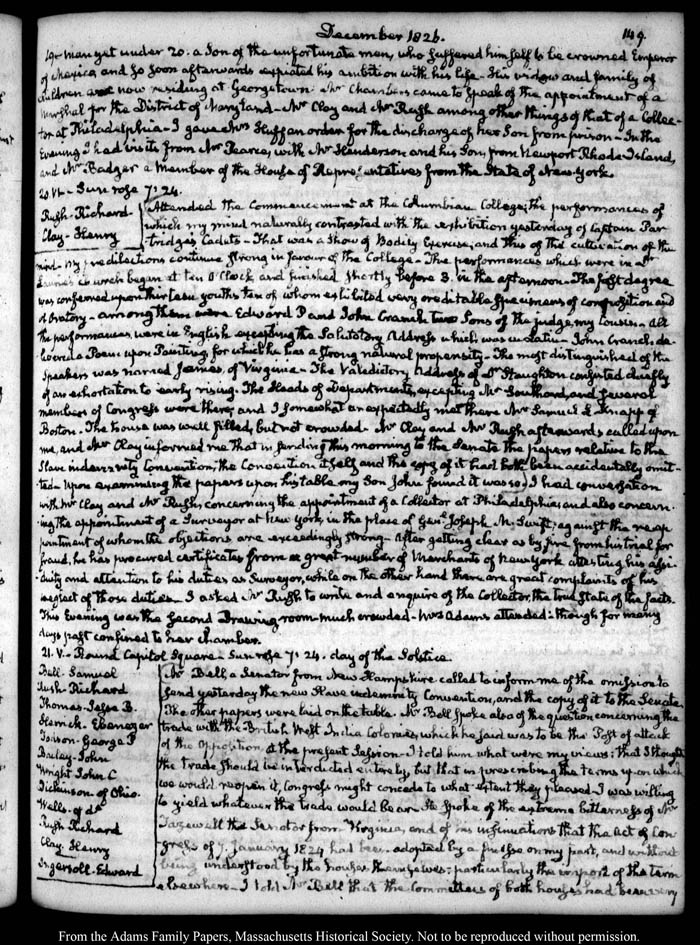 December 1826.
149.
19. Man yet under 20: a Son of the unfortunate man, who suffered himself to be crowned Emperor
of Mexico, and so soon afterwards expiated his ambition with his life. His widow and family of
children are now residing at Georgetown. Mr Chambers came to speak of the appointment of a
Marshal for the District of Maryland. Mr Clay and Mr Rush among other things of that of a Collec-
tor at Philadelphia. I gave Mrs Huff an order for the discharge of her Son from prison. In the
Evening I had visits from Mr Pearce, with Mr Henderson, and his Son, from Newport Rhode Island,
and Mr Badger a Member of the House of Representatives from the State of New York.
20. IV. Sun rose 7:24.
Rush. Richard
Clay. Henry
Attended the Commencement at the Columbian College; the performances of
which my mind naturally contrasted with the exhibition yesterday of Captain Par-
tridge's Cadets. That was a Show of Bodily Exercise; and this of the cultivation of the
mind. My predilections continue strong in favour of the College. The performances which were in Dr
Laurie's Church began at ten O'Clock and finished shortly before 3. in the afternoon. The first degree
was conferred upon thirteen youths ten of whom exhibited very creditable specimens of composition and
of Oratory. Among them were Edward P and John Cranch two Sons of the judge, my Cousin. All
the performances were in English excepting the Salutatory Address which was in Latin. John Cranch, de-
livered a Poem upon Painting, for which he has a strong natural propensity. The most distinguished of the
Speakers was named James, of Virginia. The Valedictory Address of Dr Staughton consisted chiefly
of an exhortation to early rising. The Heads of Departments, excepting Mr Southard, and several
members of Congress were there, and I somewhat unexpectedly met there Mr Samuel L. Knapp of
Boston. The house was well filled, but not crowded. Mr Clay and Mr Rush afterwards called upon
me, and Mr Clay informed me that in sending this morning to the Senate the papers relative to the
Slave indemnity Convention, the Convention itself and the copy of it had both been accidentally omit-
ted. Upon examining the papers upon his table my Son John found it was so. I had conversation
with Mr Clay and Mr Rush, concerning the appointment of a Collector at Philadelphia; and also concern-
ing the appointment of a Surveyor at New York, in the place of Genl Joseph M. Swift; against the reap-
pointment of whom the objections are exceedingly strong. After getting clear as by fire from his trial for
fraud, he has procured certificates from a great number of Merchants of New York attesting his assi-
duity and attention to his duties as Surveyor, while on the other hand there are great complaints of his
neglect of those duties. I asked Mr Rush to write and enquire of the Collector, the true State of the facts.
This Evening was the second Drawing room much crowded. Mrs Adams attended: though for many
days past confined to her chamber.
21. V. Round Capitol Square. Sun rose 7:24. day of the Solstice.
Bell. Samuel
Rush. Richard
Thomas. Jesse B.
Herrick. Ebenezer
Ioison. George P
Bailey. John
Wright John C
Dickinson. of Ohio.
Wells. of do
Rush Richard
Clay. Henry
Ingersoll. Edward
Mr Bell, a Senator from New Hampshire called to inform me of the omission to
send yesterday the new Slave indemnity Convention, and the copy of it to the Senate.
The other papers were laid on the table. Mr Bell spoke also of the question concerning the
trade with the British West India Colonies, which he said was to be the Post of attack
of the opposition at the present Session. I told him what were my views; that I thought
the trade should be interdicted entirely, but that in prescribing the terms upon which
we would reopen it, Congress might concede to what extent they pleased. I was willing
to yield whatever the trade would bear. He spoke of the extreme bitterness of Mr
Tazewell the Senator from Virginia, and of his insinuations that the act of Con-
gress of 7. January 1824 had been adopted by a finesse on my part, and without
being understood by the houses themselves; particularly the import of the term
elsewhere. I told Mr Bell that the Committees of both houses had been very
From the Adams Family Papers, Massachusetts Historical Society. Not to be reproduced without permission.